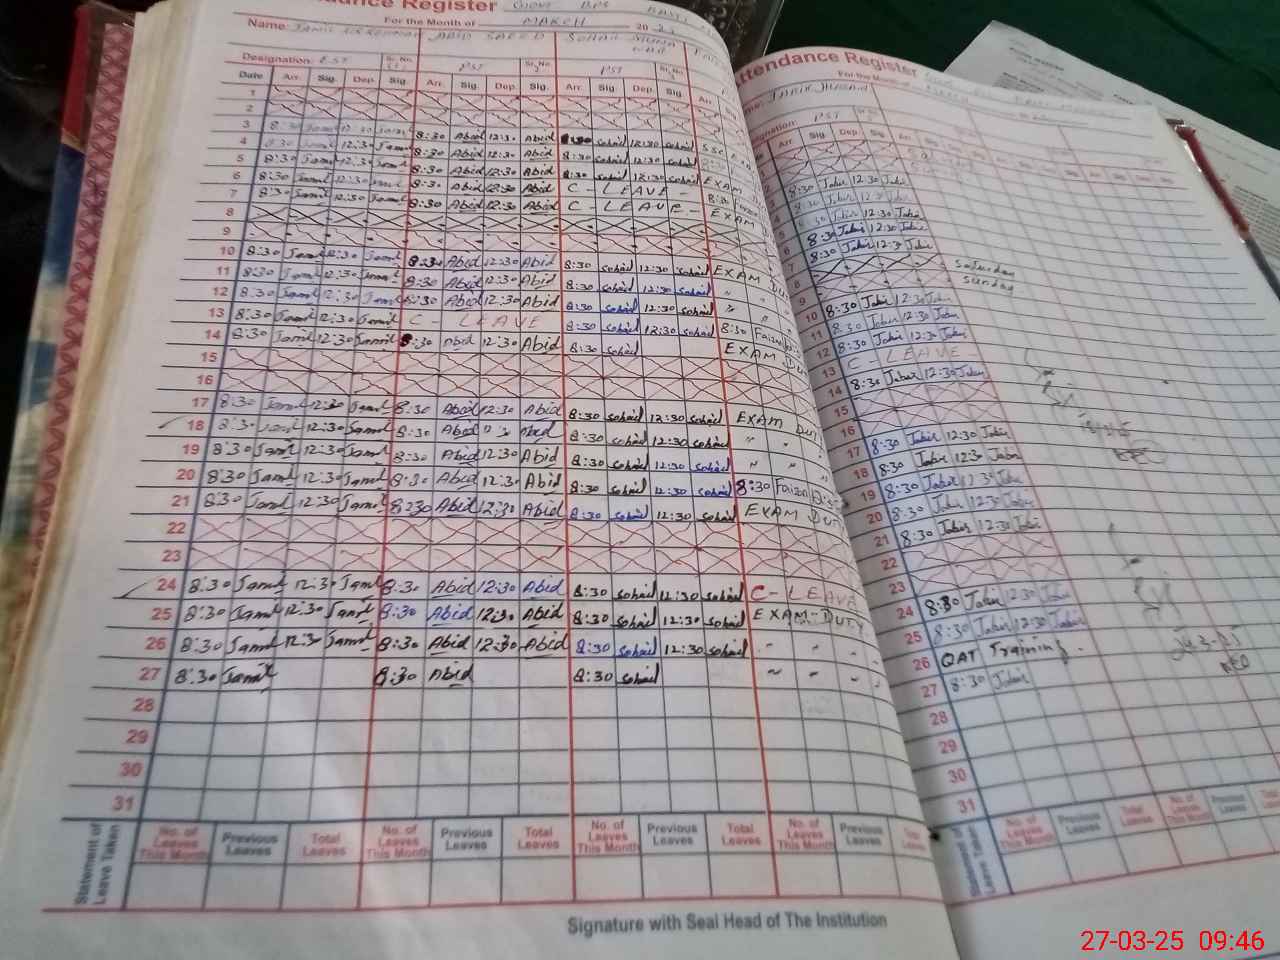 Attendance Register GOVT BPS
For the Month of MARCH 20
Name: JAMIL ABID SAEED SOHAIL
Designation: EST PST PST
Date Arr. Sig. Dep. Sig. Arr. Sig. Dep. Sig. Arr. Sig. Dep. Sig. Arr.
1
2
3 8:30 Jamil 12:30 Jamil 8:30 Abid 12:30 Abid 8:30 sohail 12:30 sohail SSC
4 8:30 Jamil 12:30 Jamil 8:30 Abid 12:30 Abid 8:30 sohail 12:30 sohail
5 8:30 Jamil 12:30 Jamil 8:30 Abid 12:30 Abid 8:30 sohail 12:30 sohail EXAM
6 8:30 Jamil 12:30 Jamil 8:30 Abid 12:30 Abid C - LEAVE - 8:30
7 8:30 Jamil 12:30 Jamil 8:30 Abid 12:30 Abid C - LEAVE - EXAM
8
9
10 8:30 Jamil 12:30 Jamil 8:30 Abid 12:30 Abid 8:30 sohail 12:30 sohail EXAM
11 8:30 Jamil 12:30 Jamil 8:30 Abid 12:30 Abid 8:30 sohail 12:30 sohail " "
12 8:30 Jamil 12:30 Jamil 8:30 Abid 12:30 Abid 8:30 sohail 12:30 sohail " "
13 8:30 Jamil 12:30 Jamil C LEAVE 8:30 sohail 12:30 sohail 8:30 Faizan
14 8:30 Jamil 12:30 Jamil 8:30 Abid 12:30 Abid 8:30 sohail EXAM
15
16
17 8:30 Jamil 12:30 Jamil 8:30 Abid 12:30 Abid 8:30 sohail 12:30 sohail EXAM DUTY
18 8:30 Jamil 12:30 Jamil 8:30 Abid 12:30 Abid 8:30 sohail 12:30 sohail " "
19 8:30 Jamil 12:30 Jamil 8:30 Abid 12:30 Abid 8:30 sohail 12:30 sohail " "
20 8:30 Jamil 12:30 Jamil 8:30 Abid 12:30 Abid 8:30 sohail 12:30 sohail 8:30 Faizan
21 8:30 Jamil 12:30 Jamil 8:30 Abid 12:30 Abid 8:30 sohail 12:30 sohail EXAM DUTY
22
23
24 8:30 Jamil 12:30 Jamil 8:30 Abid 12:30 Abid 8:30 sohail 12:30 sohail C - LEAVE
25 8:30 Jamil 12:30 Jamil 8:30 Abid 12:30 Abid 8:30 sohail 12:30 sohail EXAM - DUTY
26 8:30 Jamil 12:30 Jamil 8:30 Abid 12:30 Abid 8:30 sohail 12:30 sohail " " "
27 8:30 Jamil 8:30 Abid 8:30 sohail " " "
28
29
30
31
Statement of Leave Taken
No. of Leaves This Month Previous Leaves Total Leaves No. of Leaves This Month Previous Leaves Total Leaves No. of Leaves This Month Previous Leaves Total Leaves No. of Leaves This Month Previous Leaves
Signature with Seal Head of The Institution
Attendance Register
For the Month of
PST
Arr. Sig. Dep. Sig.
8:30 Jabir 12:30 Jabir
8:30 Jabir 12:30 Jabir
8:30 Jabir 12:30 Jabir
5 8:30 Jabir 12:30 Jabir
6 8:30 Jabir 12:30 Jabir
7
8 Saturday
9 Sunday
10 8:30 Jabir 12:30 Jabir
11 8:30 Jabir 12:30 Jabir
12 8:30 Jabir 12:30 Jabir
13 C LEAVE
14 8:30 Jabir 12:30 Jabir
15
16
17 8:30 Jabir 12:30 Jabir
18 8:30 Jabir 12:30 Jabir
19 8:30 Jabir 12:30 Jabir
20 8:30 Jabir 12:30 Jabir
21 8:30 Jabir 12:30 Jabir
22
23
24 8:30 Jabir 12:30 Jabir
25 8:30 Jabir 12:30 Jabir
26 QAT Training
27 8:30 Jabir
28
29
30
31
Statement of Leave Taken
No. of Leaves This Month Previous Leaves Total Leaves No. of Leaves This Month Previous Leaves Total Leaves
27-03-25 09:46